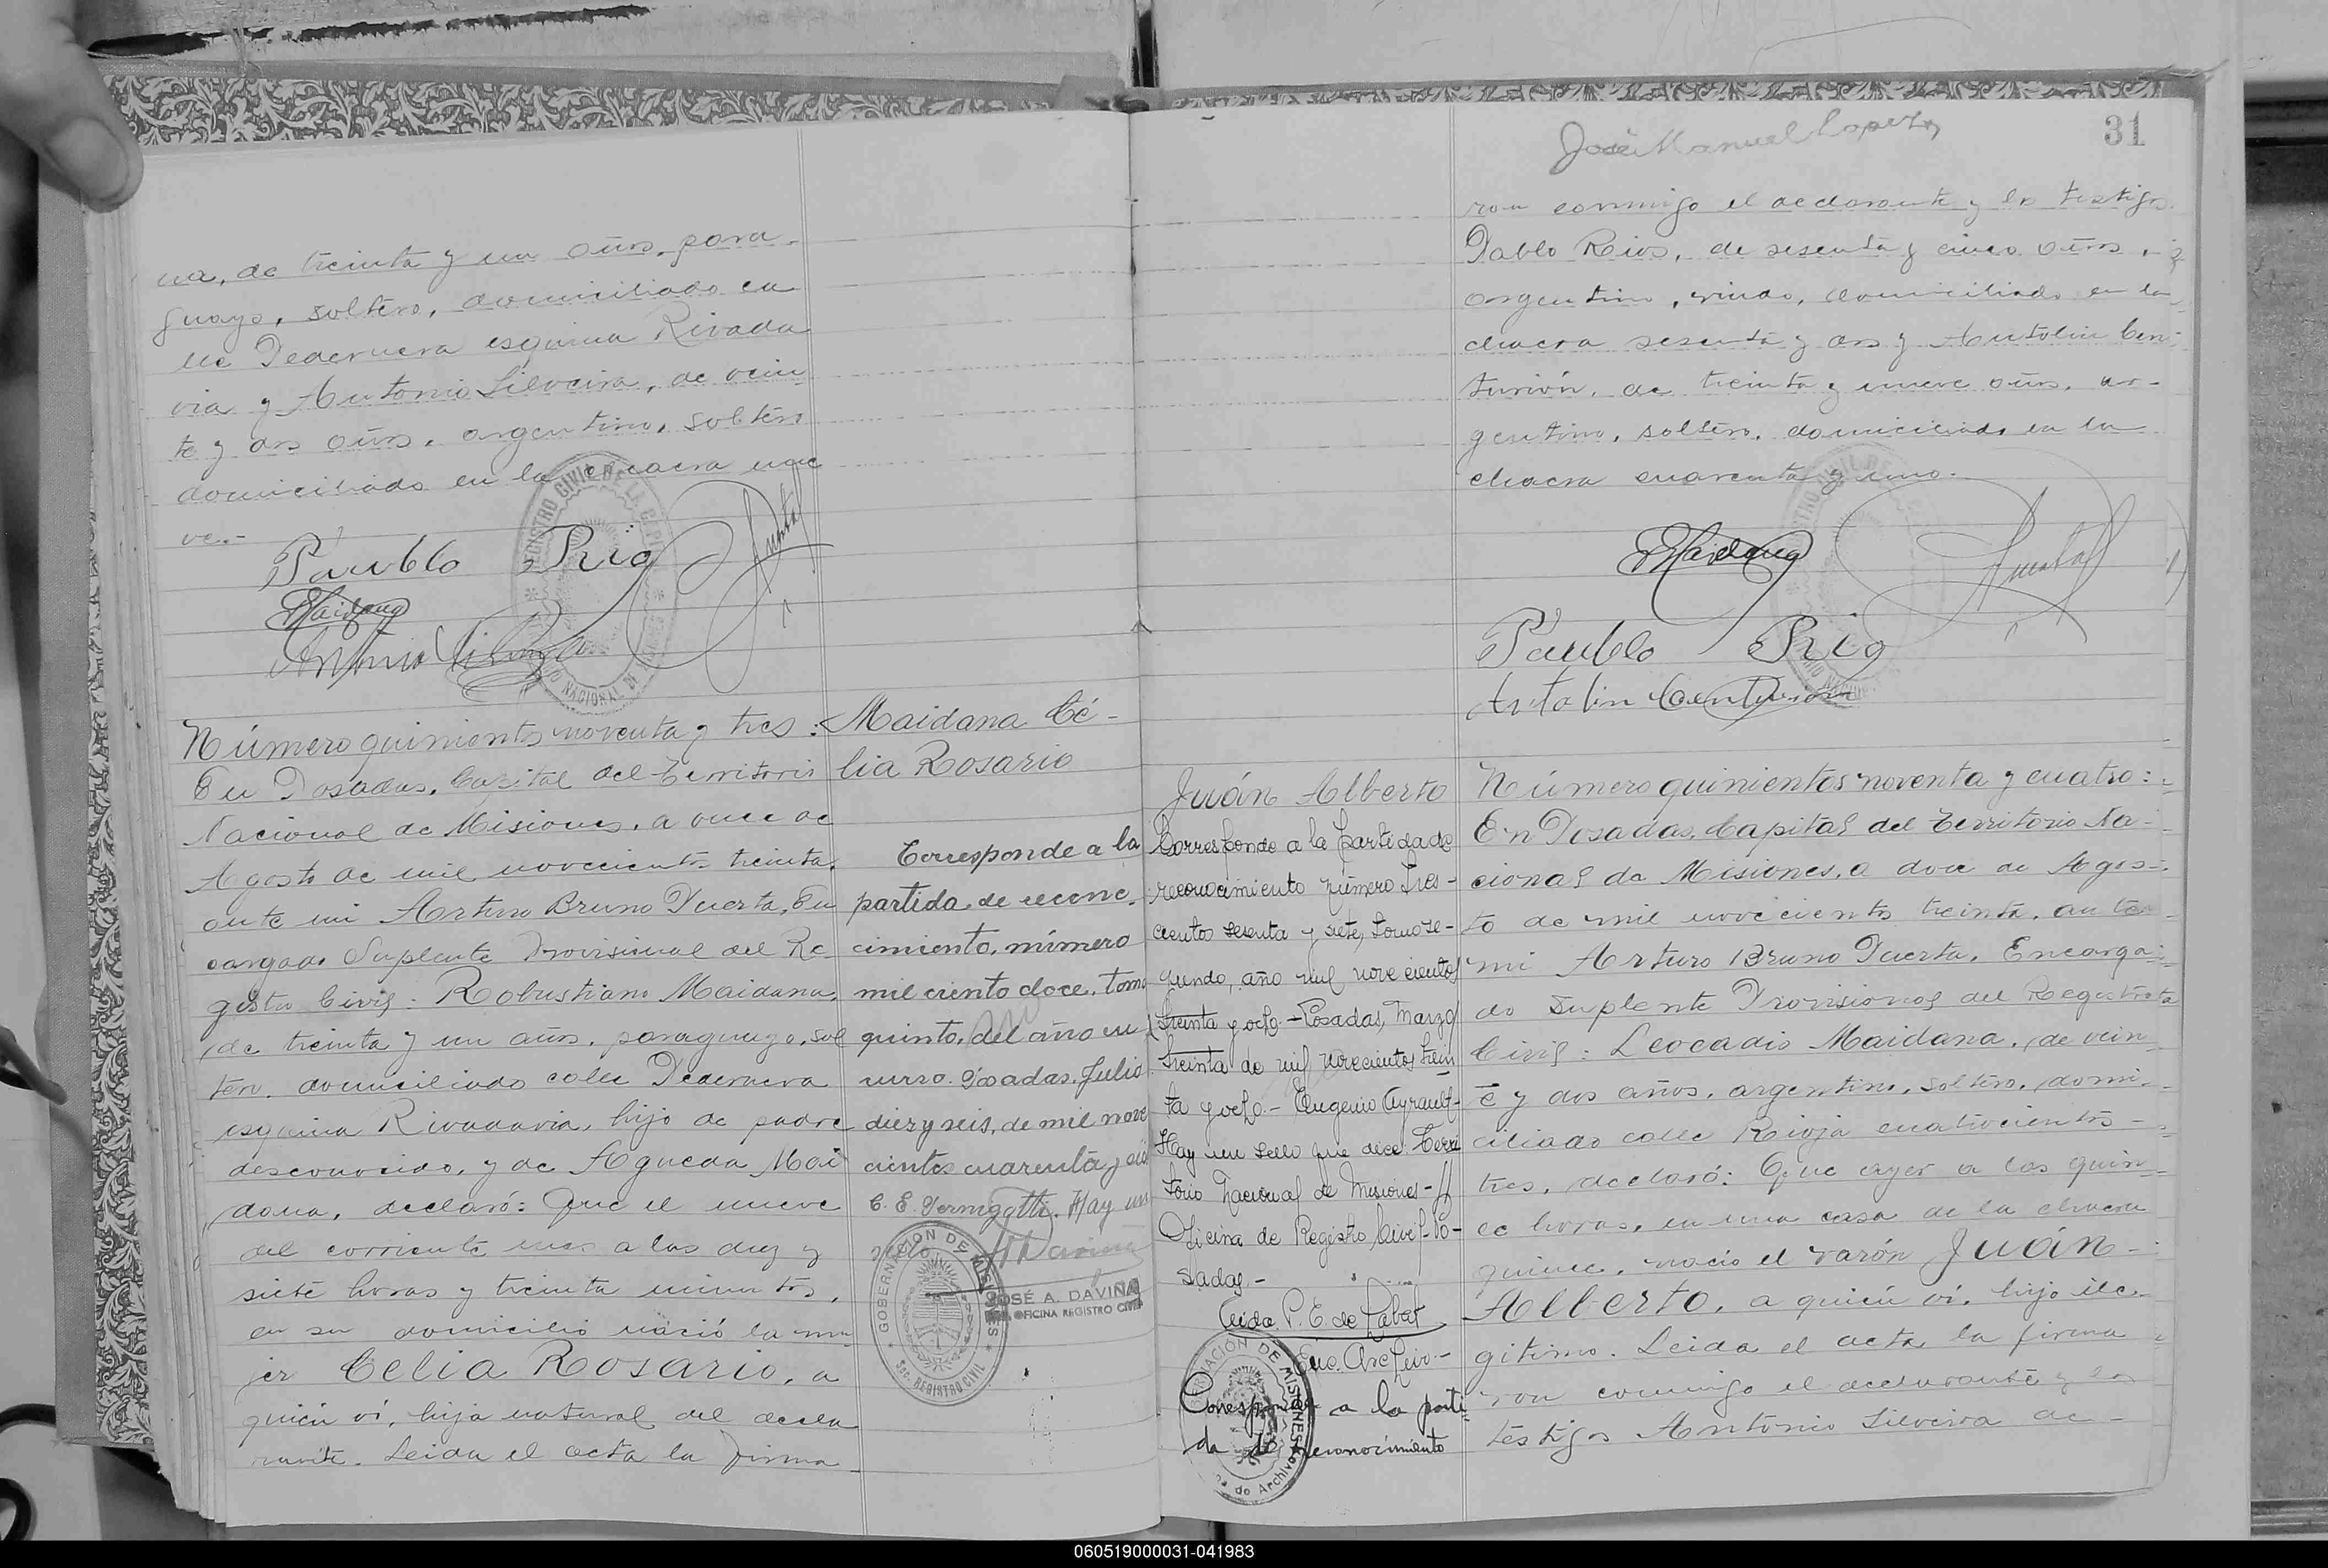 na, de treinta y un años, para-
guayo, soltero, domiciliado ca
lle Pedernera esquina Rivada
via y Antonio Silveira, de vein
te y dos años, argentino, soltero
domiciliado en la chacra nue
ve.-
Paublo Rio
EMaidana
Antonio Silveira
Número quinientos noventa y tres:
En Posadas, Capital del Territorio
Nacional de Misiones, a once de
Agosto de mil novecientos treinta,
ante mi Arturo Bruno Puerta, En
cargado Suplente Provisional del Re-
gistro Civil: Robustiano Maidana,
de treinta y un años, paraguayo, sol
tero, domiciliado calle Pedernera
esquina Rivadavia, hijo de padre
desconocido, y de Agueda Mai
dana, declaró: Que el nueve
del corriente mes a las diez y
siete horas y treinta minutos,
en su domicilio nació la mu
jer Celia Rosario, a
quien ví, hija natural del decla
rante. Leida el acta la firma
Maidana Cé-
lia Rosario
Corresponde a la
partida de recono-
cimiento, número
mil ciento doce, tomo
quinto, del año en
curso. Posadas, Julio
diez y seis, de mil nove
cientos cuarenta y
Hay un
sello
GOBERNACION DE MISIONES
Sec. REGISTRO CIVIL
JOSÉ A. DAVIÑA
OFICINA REGISTRO CIVIL
José Manuel Lopez
31
ron conmigo el declarante y los testigos
Pablo Rios, de sesenta y cinco años,
argentino, viudo, domiciliado en la
chacra sesenta y dos y Antolin Cen-
turión, de treinta y nueve años, ar-
gentino, soltero, domiciliado en la
chacra cuarenta y uno.
EMaidana
Paublo Rio
Antolin Centurion
Juán Alberto
Corresponde a la partida de
reconocimiento número tres-
cientos sesenta y siete, tomo se-
gundo, año mil novecientos
treinta y ocho.- Posadas, Marzo
treinta de mil novecientos trein
ta y ocho.- Eugenio Ayrault-
Hay un sello que dice: Terri
torio Nacional de Misiones-
Oficina de Registro Civil-Po-
sadas.-
Enc. Archivo-
Corresponde a la parti
da de reconocimiento
Número quinientos noventa y cuatro:
En Posadas, Capital del Territorio Na-
cional de Misiones, a doce de Agos-
to de mil novecientos treinta, ante
mi Arturo Bruno Puerta, Encarga-
do Suplente Provisional del Registro
Civil: Leocadio Maidana, de vein
te y dos años, argentino, soltero, domi-
ciliado calle Rioja cuatrocientos
tres, declaró: Que ayer a las quin
ce horas, en una casa de la chacra
quince, nació el varón Juán
Alberto, a quien ví, hijo ile-
gitimo. Leida el acta la firma
ron conmigo el declarante y los
testigos Antonio Silveira de
060519000031-041983